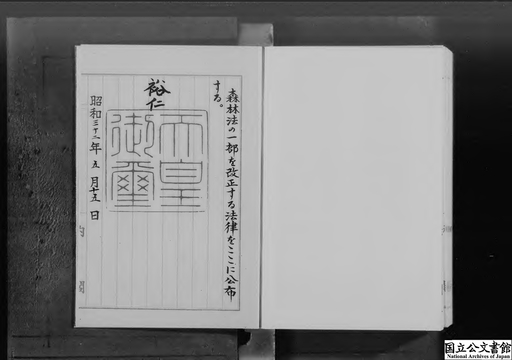 森林法の一部を改正する法律をここに公布
する。
裕仁
天皇
御璽
昭和三十二年五月十五日
国立公文書館
National Archives of Japan